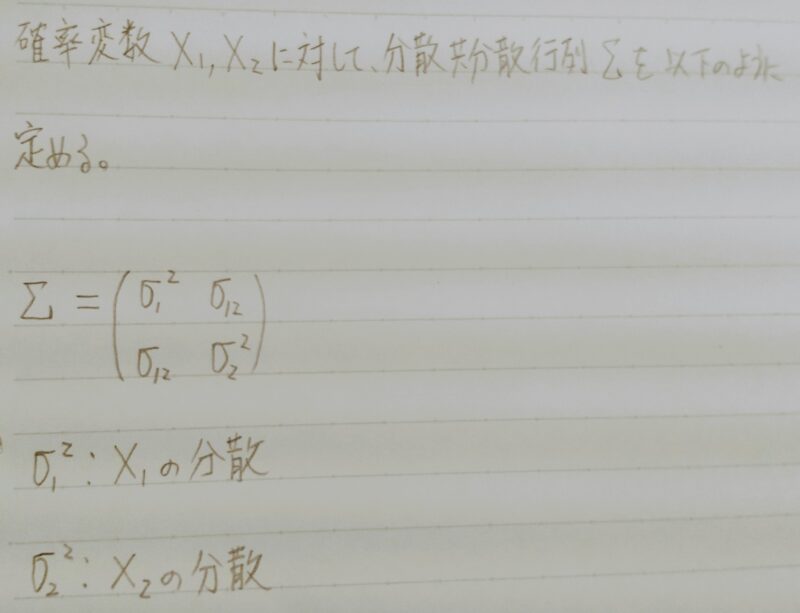 確率変数 X₁, X₂ に対して、分散共分散行列 Σ を 以下のように
定める。
Σ = (σ₁² σ₁₂
σ₁₂ σ₂²)
σ₁² : X₁の分散
σ₂² : X₂の分散